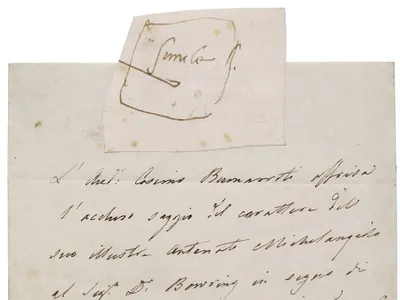 Simile
Cosimo Buonarroti offriva
l'accluso saggio del carattere del
suo illustre Antenato Michelangelo
al Sigr. Dr. Bowring in segno di